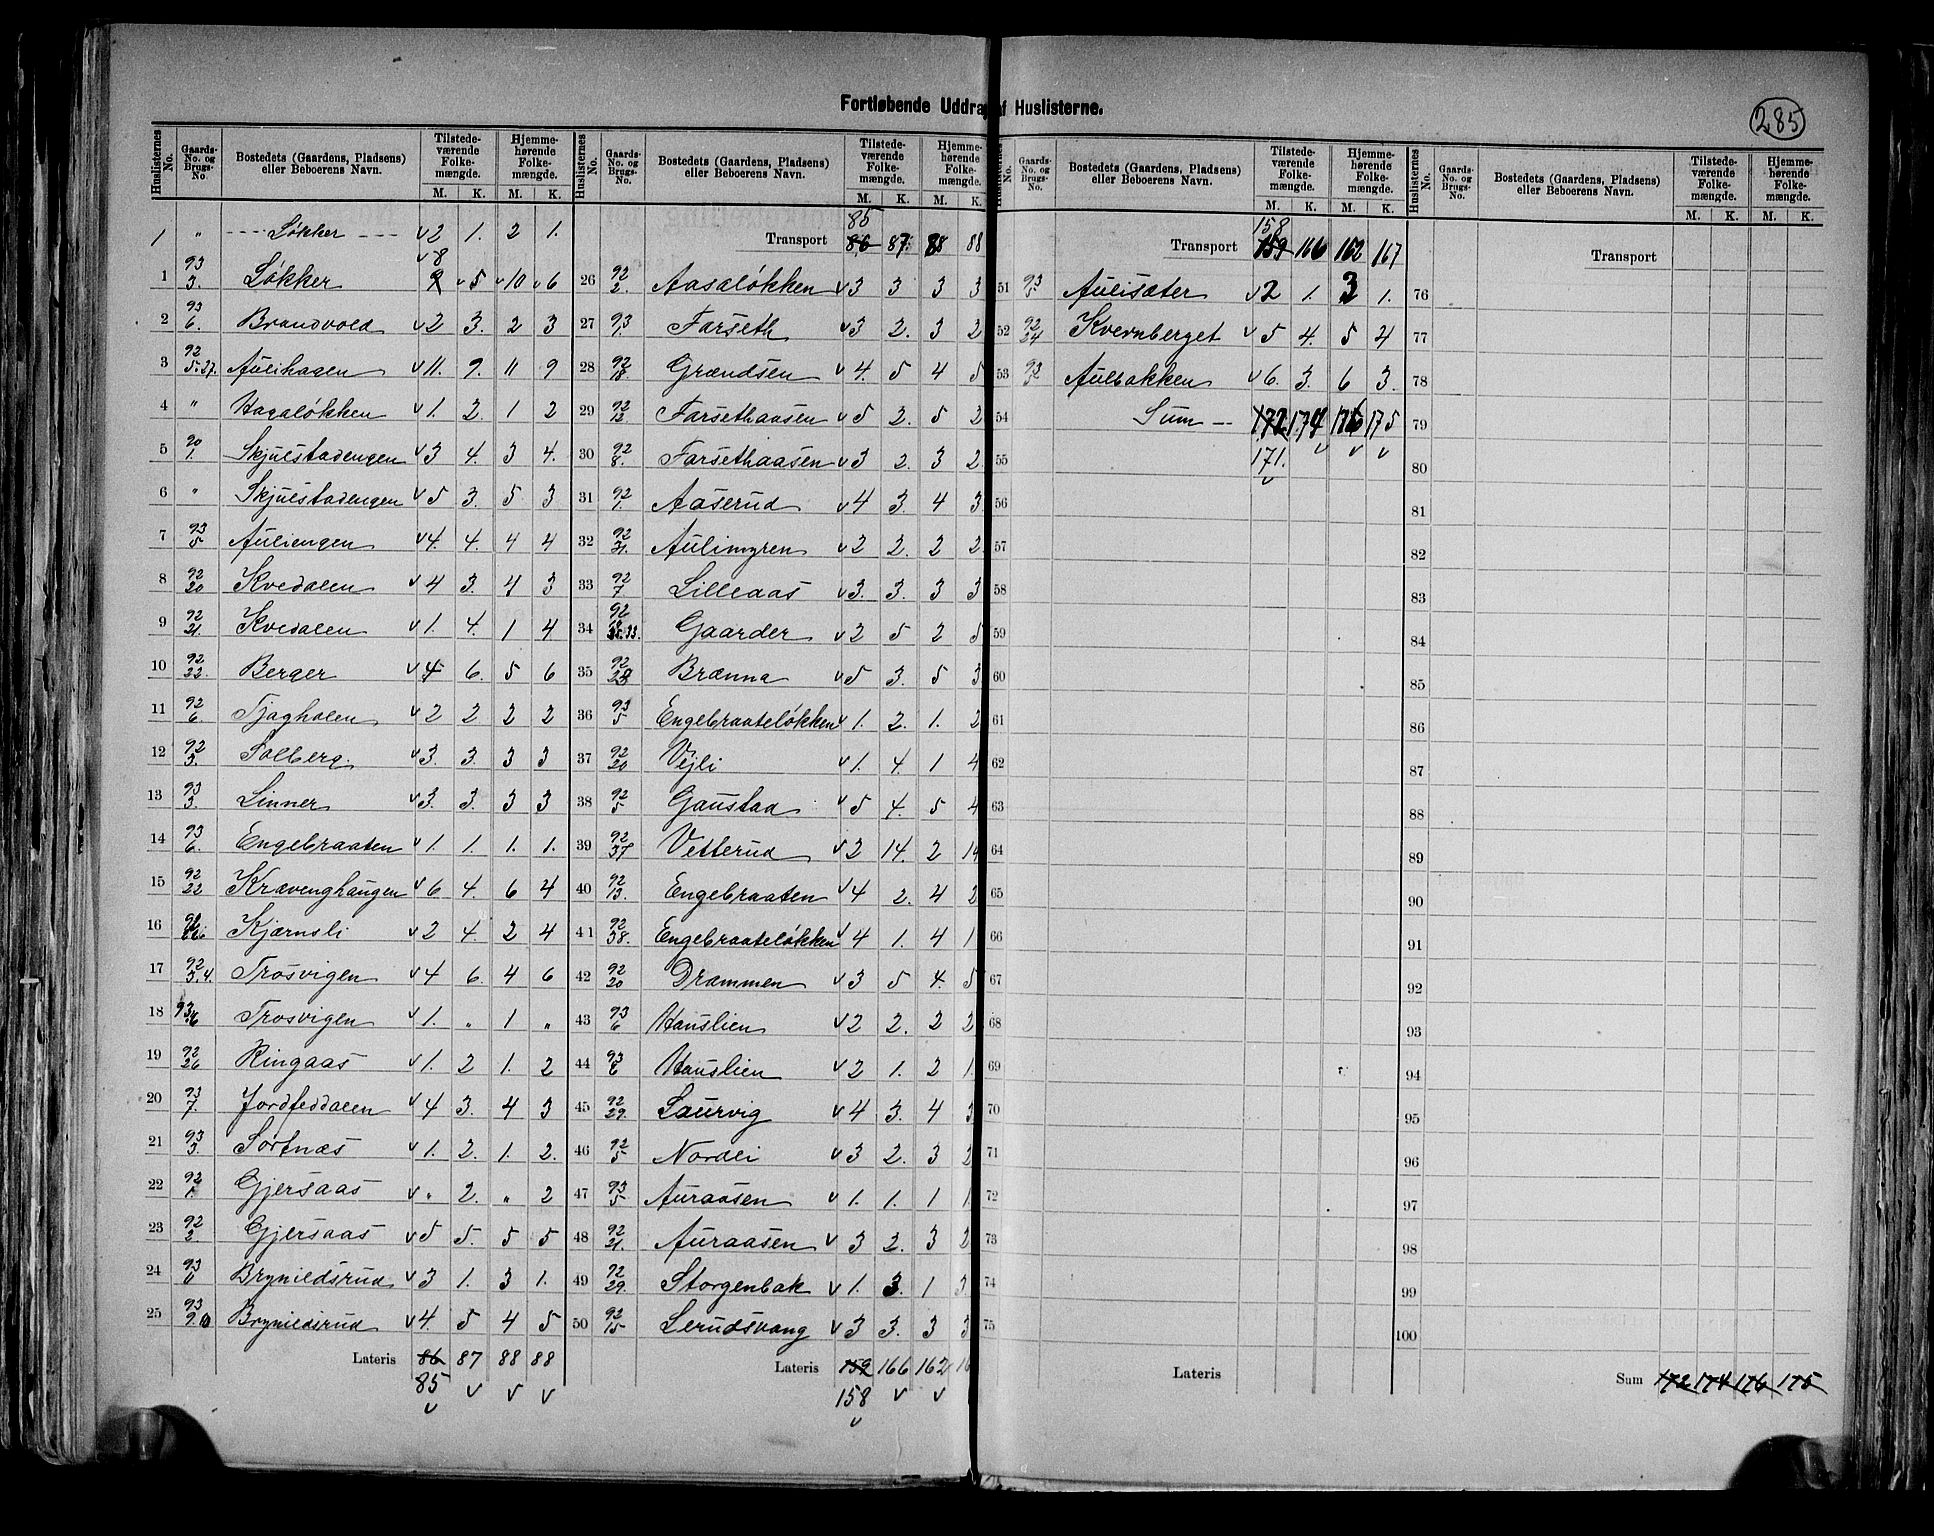 Fortløbende Uddra af Huslisterne.
285
Huslisternes No. | Gaards-No. og Brugs-No. | Bostedets (Gaardens, Pladsens) eller Beboerens Navn. | Tilstedeværende Folkemængde. M. K. | Hjemmehørende Folkemængde. M. K.
1 " Løkker 2 1. 2 1.
1 93/3. Løkker 9 8 5 10 6
2 93/6. Brandvold 2 3. 2 3
3 92/5.27. Aulihagen 11. 9. 11 9
4 " Hagaløkken 1. 2. 1 2
5 90/1. Skjulstadengen 3 4. 3 4.
6 " Skjulstadengen 5 3. 5 3
7 93/5 Auliengen 4. 4. 4 4
8 92/20 Kvedalen 4 3. 4 3
9 92/21. Kvedalen 1. 4. 1 4
10 92/22. Berger 4 6. 5 6
11 92/6. Tjagholen 2 2 2 2
12 92/3. Solberg 3. 3. 3 3
13 93/3. Linner 3. 3. 3 3
14 93/6. Engebraaten 1. 1. 1. 1.
15 92/22 Krævenghaugen 6 4. 6 4
16 Kjærnsli 2 4. 2 4
17 92/3.4. Trosvigen 4 6. 4 6
18 93/6 Trosvigen 1. " 1 "
19 92/26 Ringaas 1. 2 1. 2
20 93/7. Jordfeddalen 4 3. 4 3
21 93/3. Sørtnæs 1. 2. 1. 2.
22 92/1. Gjersaas " 2. " 2
23 92/2. Gjersaas 5 5. 5 5
24 93/6 Brynildsrud 3 1. 3 1.
25 93/9.10 Brynildsrud 4. 5 4 5
Lateris 86 87 88 88
85
Transport 86 87. 88 88
85
26 92/2. Aasaløkken 3 3 3 3
27 93/1. Farseth 3 2. 3 2
28 92/18. Grændsen 4. 5 4 5
29 92/12. Farsethaasen 5 2. 5 2
30 92/8. Farsethaasen 3 2. 3 2
31 92/1. Aaserud 4 3. 4 3
32 92/31. Aulimyren 2 2. 2 2
33 92/7 Lilleaas 3. 3. 3 3
34 92 Gaarder 2 5 2 5
35 92/28 Brænna 5 3. 5 3
36 93/5 Engebraateløkken 1. 2. 1. 2
37 92/20 Vejli 1. 4. 1 4
38 92/5 Gaustad 5 4. 5 4
39 92/37 Vetterud 2 14. 2 14
40 92/13. Engebraaten 4 2. 4 2
41 92/38. Engebraateløkken 4 1. 4 1
42 92/20 Drammen 3 5 4. 5
43 93/6 Hauslien 2 2. 2 2
44 93/6 Hauslien 2 1. 2 1.
45 92/29. Saurvig 4 3. 4 3
46 92/5 Nordli 3 2. 3 2
47 93/5 Auraasen 1. 1. 1 1
48 92/21. Auraasen 3 2. 3 2
49 92/29. Storgenbak 1. 3. 1 3
50 92/15 Lerudsvang 3 3. 3 3
Lateris 159 166 162 16
158
Transport 159 166 162 167
158
51 93/5 Aulisæter 2 1. 3 1.
52 92/24 Kvernberget 5 4. 5 4
53 93/5 Aulbakken 6. 3. 6 3.
54 Sum 172 174 176 175
55 171.
56
57
58
59
60
61
62
63
64
65
66
67
68
69
70
71
72
73
74
75
Lateris
Transport
76
77
78
79
80
81
82
83
84
85
86
87
88
89
90
91
92
93
94
95
96
97
98
99
100
Sum 172 174 176 175